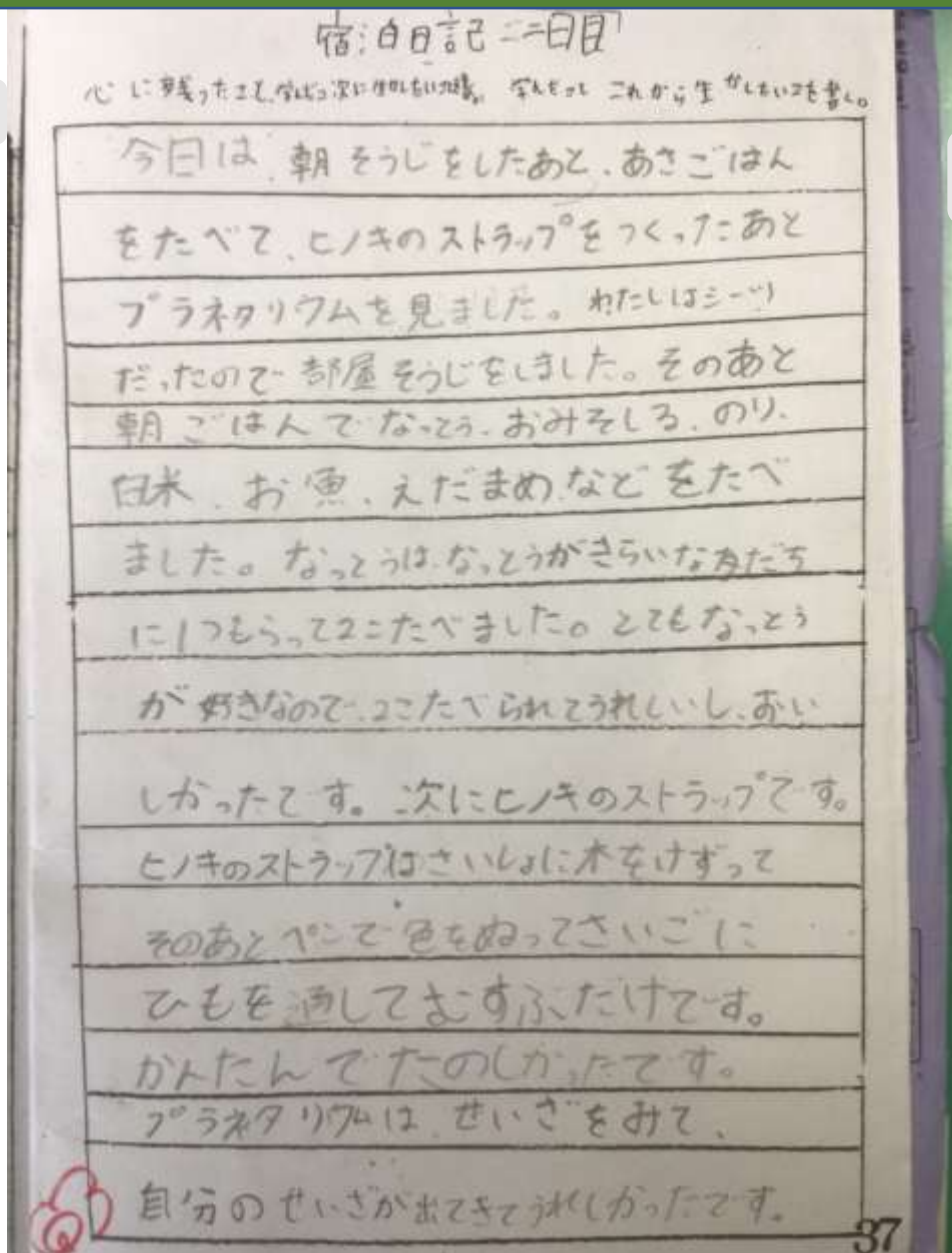 宿泊日記 二日目
心に残ったこと、学んだこと次に生かしたい 学んだこと これから生かしたいことを書く。
今日は、朝そうじをしたあと、あさごはん
をたべて、ヒノキのストラップをつくったあと
プラネタリウムを見ました。わたしはシーツ
だったので部屋そうじをしました。そのあと
朝ごはんでなっとう、おみそしる、のり、
白米、お魚、えだまめなどをたべ
ました。なっとうは、なっとうがきらいな友だち
に1つもらって2こたべました。とてもなっとう
が好きなので、2こたべられてうれしいし、おい
しかったです。次にヒノキのストラップです。
ヒノキのストラップはさいしょに木をけずって
そのあとペンで色をぬってさいごに
ひもを通してむすぶだけです。
かんたんでたのしかったです。
プラネタリウムは、せいざをみて、
自分のせいざが出てきてうれしかったです。
37